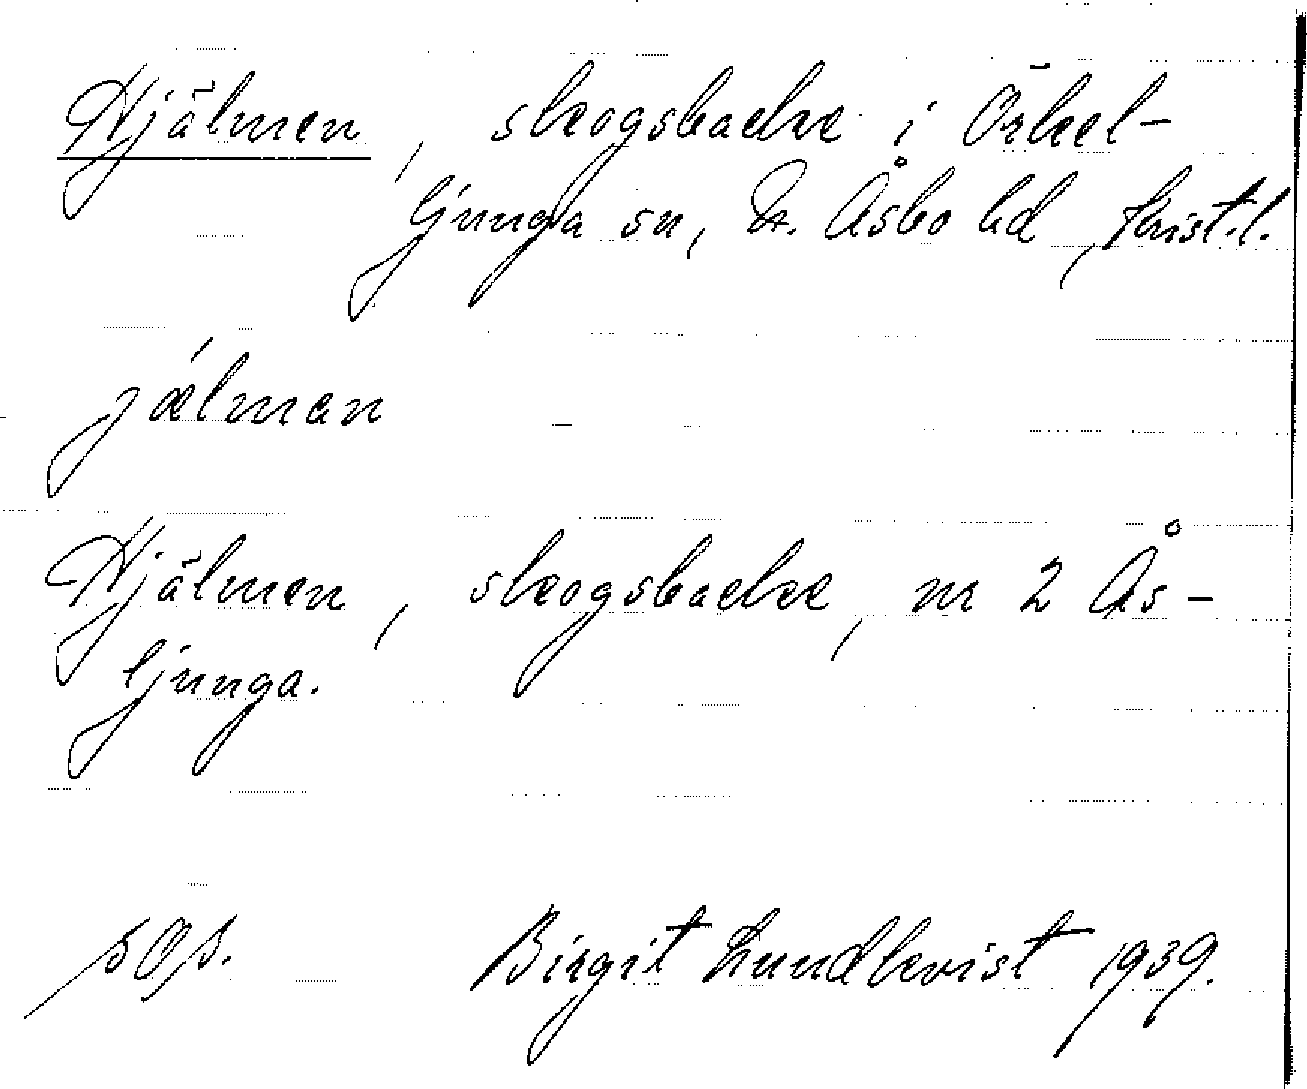 Hjälmen, skogsbacke i Örkel-
ljunga sn, N. Åsbo hd, Krist.l.
jælman
Hjälmen, skogsbacke, nr 2 Ås-
ljunga.
Birgit Lundkvist 1939.